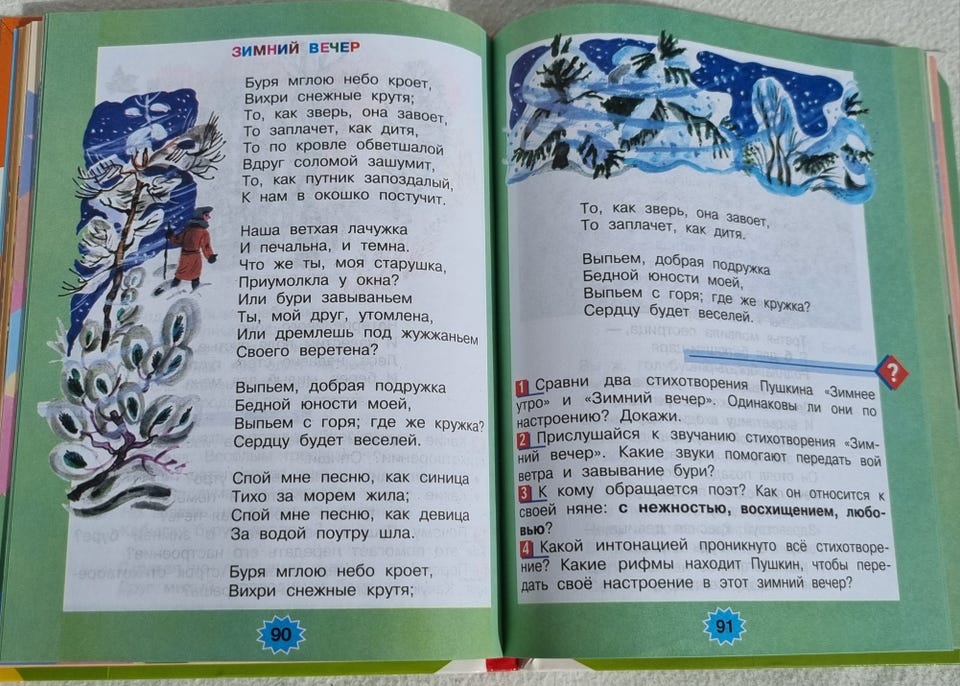 ЗИМНИЙ ВЕЧЕР
Буря мглою небо кроет,
Вихри снежные крутя;
То, как зверь, она завоет,
То заплачет, как дитя,
То по кровле обветшалой
Вдруг соломой зашумит,
То, как путник запоздалый,
К нам в окошко постучит.
Наша ветхая лачужка
И печальна, и темна.
Что же ты, моя старушка,
Приумолкла у окна?
Или бури завываньем
Ты, мой друг, утомлена,
Или дремлешь под жужжаньем
Своего веретена?
Выпьем, добрая подружка
Бедной юности моей,
Выпьем с горя; где же кружка?
Сердцу будет веселей.
Спой мне песню, как синица
Тихо за морем жила;
Спой мне песню, как девица
За водой поутру шла.
Буря мглою небо кроет,
Вихри снежные крутя;
90
То, как зверь, она завоет,
То заплачет, как дитя.
Выпьем, добрая подружка
Бедной юности моей,
Выпьем с горя; где же кружка?
Сердцу будет веселей.
?
1 Сравни два стихотворения Пушкина «Зимнее
утро» и «Зимний вечер». Одинаковы ли они по
настроению? Докажи.
2 Прислушайся к звучанию стихотворения «Зим-
ний вечер». Какие звуки помогают передать вой
ветра и завывание бури?
3 К кому обращается поэт? Как он относится к
своей няне: с нежностью, восхищением, любо-
вью?
4 Какой интонацией проникнуто всё стихотворе-
ние? Какие рифмы находит Пушкин, чтобы пере-
дать своё настроение в этот зимний вечер?
91